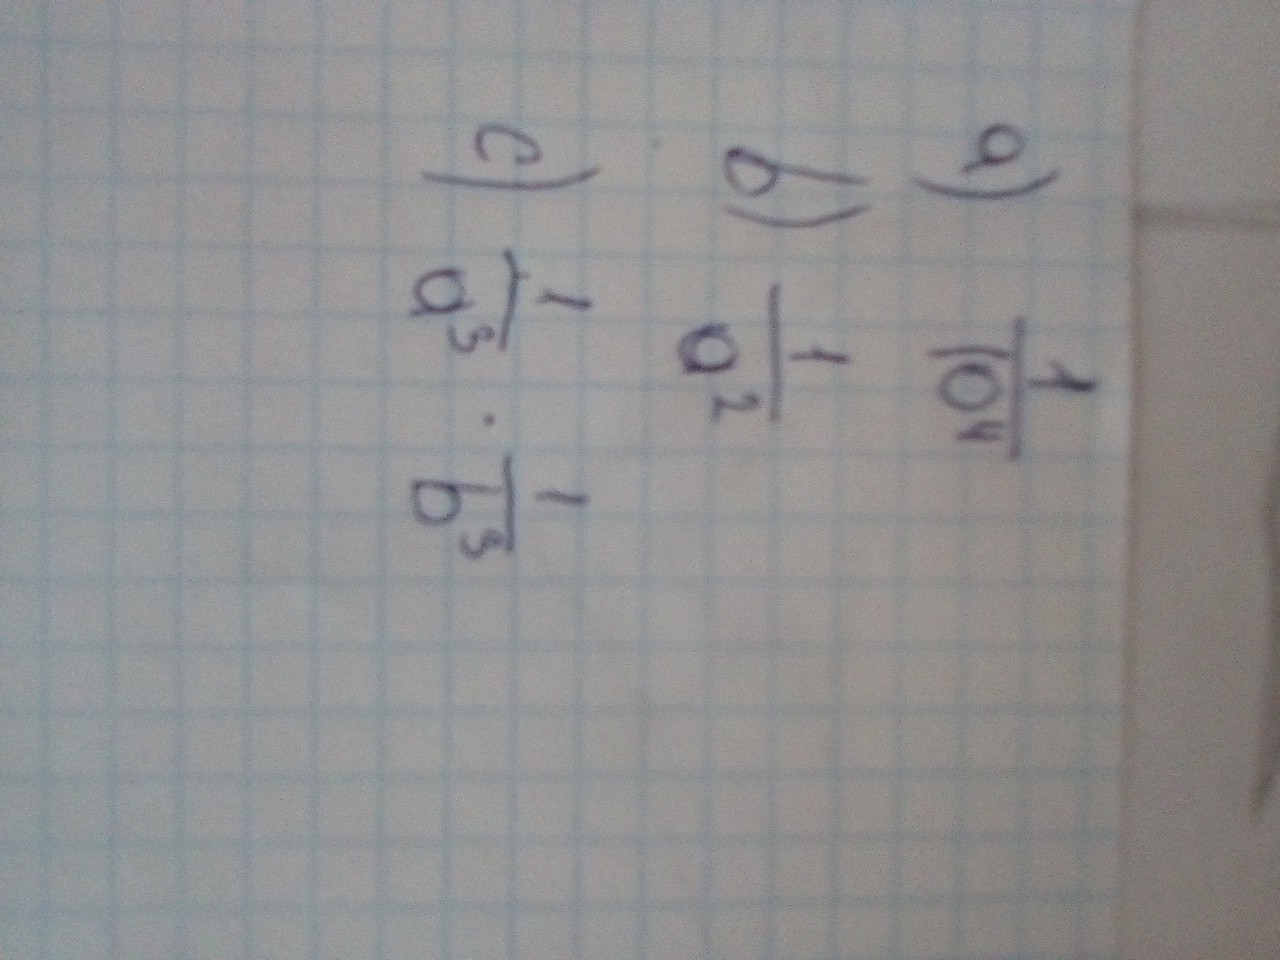 a) 1/10⁴
b) 1/a²
c) 1/a³ · 1/b³